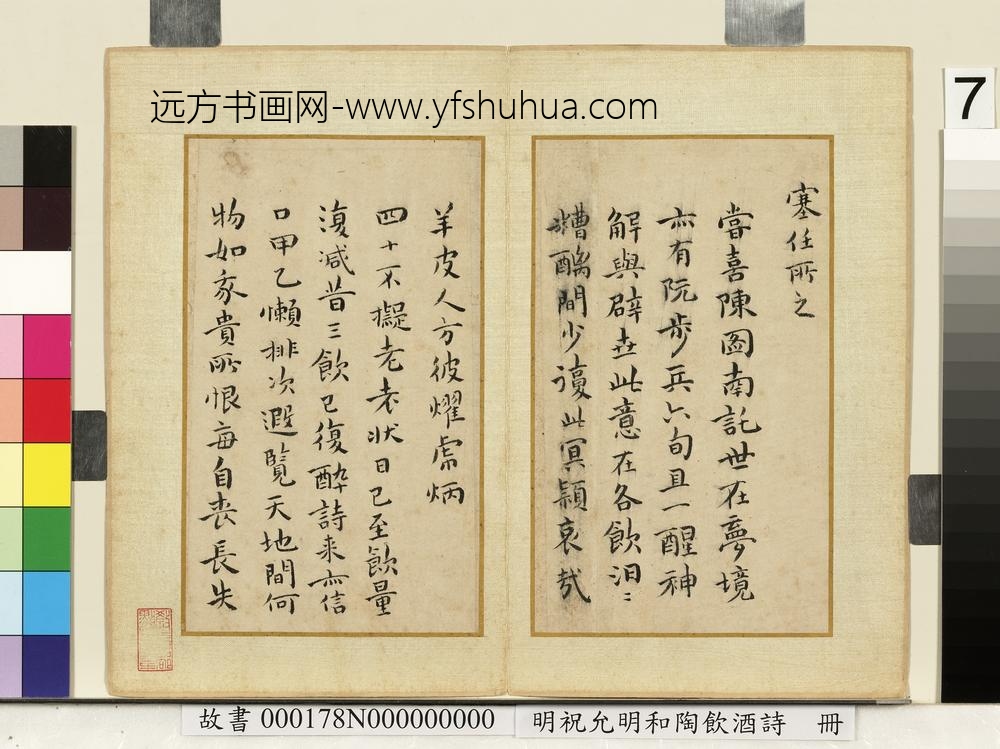 远方书画网-www.yfshuhua.com
7
塞任所之
嘗喜陳圖南託世在夢境
亦有阮步兵六旬且一醒神
解與辟世此意在各飲汨〻
糟醨間少讀此冥穎哀哉
羊皮人方彼燿虎炳
四十不擬老老狀日已至飲量
復減昔三飲已復酔詩来亦信
口甲乙懶排次遐覽天地間何
物如家貴所恨每自喪長失
故書 000178N000000000
明祝允明和陶飲酒詩 冊